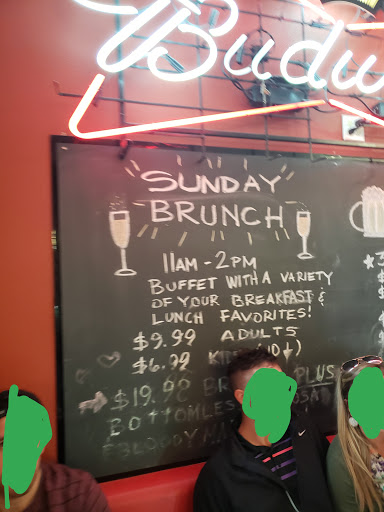 Budw
SUNDAY
BRUNCH
11AM - 2PM
BUFFET WITH A VARIETY
OF YOUR BREAKFAST &
LUNCH FAVORITES!
$9.99 ADULTS
$6.99
$19.99 PLUS
BOTTOMLESS
BLOODY